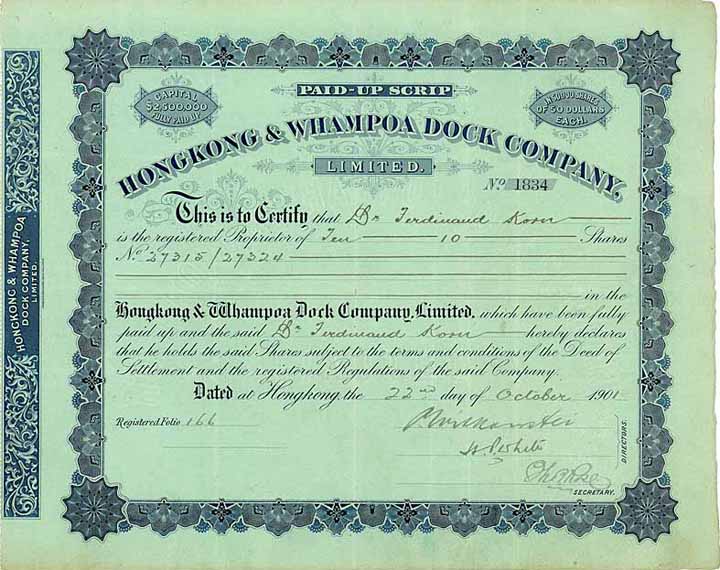 HONGKONG & WHAMPOA
DOCK COMPANY,
LIMITED.
CAPITAL
$2,500,000
FULLY PAID UP
PAID-UP SCRIP
IN 50,000 SHARES
OF 50 DOLLARS
EACH.
HONGKONG & WHAMPOA DOCK COMPANY,
LIMITED.
No 1834
This is to Certify that Dr Ferdinand Korn
is the registered Proprietor of Ten 10 Shares
No 27315/27324
in the
Hongkong & Whampoa Dock Company, Limited, which have been fully
paid up and the said Dr Ferdinand Korn hereby declares
that he holds the said Shares subject to the terms and conditions of the Deed of
Settlement and the registered Regulations of the said Company.
Dated at Hongkong, the 22nd day of October 1901
Registered Folio 166
H. P. White
DIRECTORS.
SECRETARY.